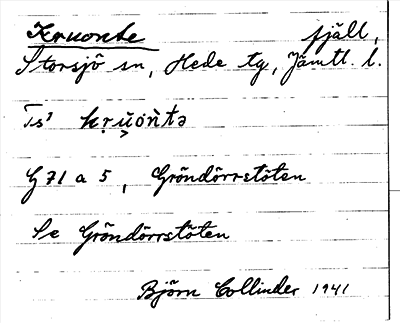 Kruonte fjäll,
Storsjö sn, Hede tg, Jämtl. l.
Ts' kr̥ŭ̬ón̆tə
G 71 a 5, Gröndörrstöten
Se Gröndörrstöten
Björn Collinder 1941